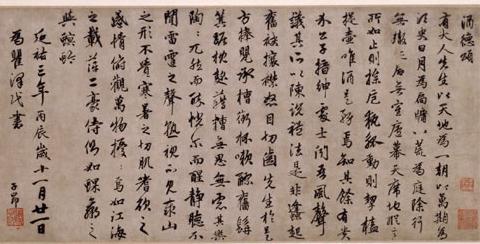 酒德頌
有大人先生以天地為一朝以萬期為
須臾日月為扃牖八荒為庭除行
無轍跡居無室廬幕天席地縱意
所如止則操卮執觚動則挈榼
提壺唯酒是務焉知其餘有貴
介公子搢紳處士聞吾風聲
議其所以陳說禮法是非鋒起
奮袂攘襟怒目切齒先生於是
方捧甖承槽銜杯漱醪奮髯
箕踞枕麴藉糟無思無慮其樂
陶〻兀然而醉恍爾而醒靜聽不
聞雷霆之聲孰視不見泰山
之形不覺寒暑之切肌嗜欲之
感情俯觀萬物擾〻焉如江海
之載萍二豪侍側焉如蜾蠃之
與螟蛉
延祐三年丙辰歲十一月廿一日
為瞿澤書
子昂